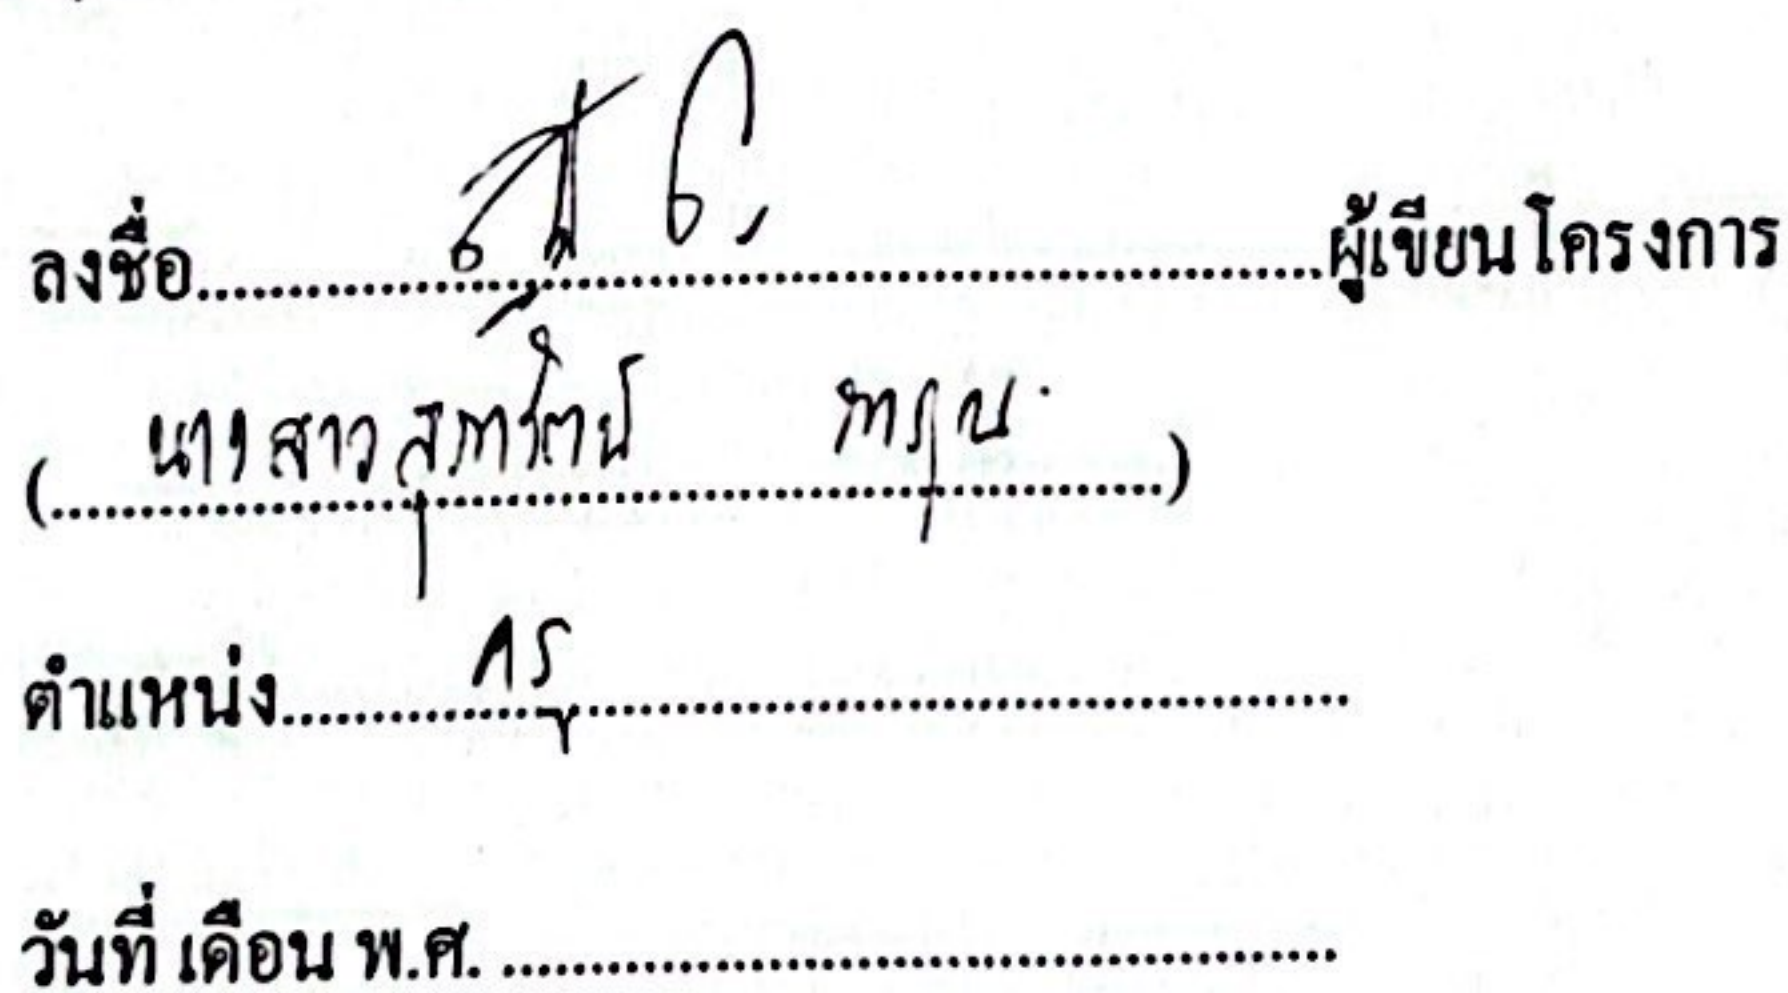 ลงชื่อ....................ผู้เขียนโครงการ
(นางสาวสุภารัตน์ ....................)
ตำแหน่ง....................ครู....................
วันที่ เดือน พ.ศ. ....................